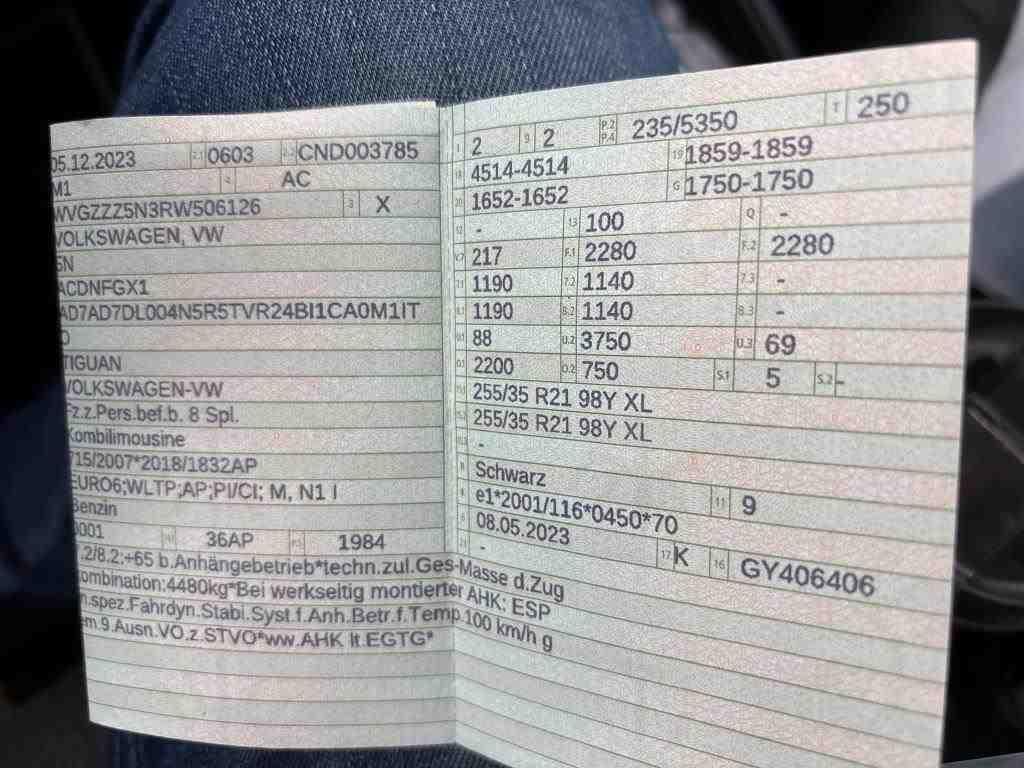 05.12.2023 2.1 0603 2.2 CND003785
M1 4 AC
WVGZZZ5N3RW506126 3 X
VOLKSWAGEN, VW
5N
ACDNFGX1
AD7AD7DL004N5R5TVR24BI1CA0M1IT
TIGUAN
VOLKSWAGEN-VW
Fz.z.Pers.bef.b. 8 Spl.
Kombilimousine
715/2007*2018/1832AP
EURO6;WLTP;AP;PI/CI; M, N1 I
Benzin
0001 36AP 1984
.2/8.2:+65 b.Anhängebetrieb*techn.zul.Ges-Masse d.Zug
ombination:4480kg*Bei werkseitig montierter AHK: ESP
.spez.Fahrdyn.Stabi.Syst.f.Anh.Betr.f.Temp.100 km/h g
em.9.Ausn.VO.z.STVO*ww.AHK lt.EGTG*
2 9 2 P.2 P.4 235/5350 T 250
18 4514-4514 19 1859-1859
20 1652-1652 G 1750-1750
12 - 13 100 Q -
217 F.1 2280 F.2 2280
7.1 1190 7.2 1140 7.3 -
8.1 1190 8.2 1140 8.3 -
U.1 88 U.2 3750 U.3 69
O.1 2200 O.2 750 S.1 5 S.2 -
255/35 R21 98Y XL
255/35 R21 98Y XL
-
R Schwarz 11 9
K e1*2001/116*0450*70
6 08.05.2023 17 K 16 GY406406
21 -